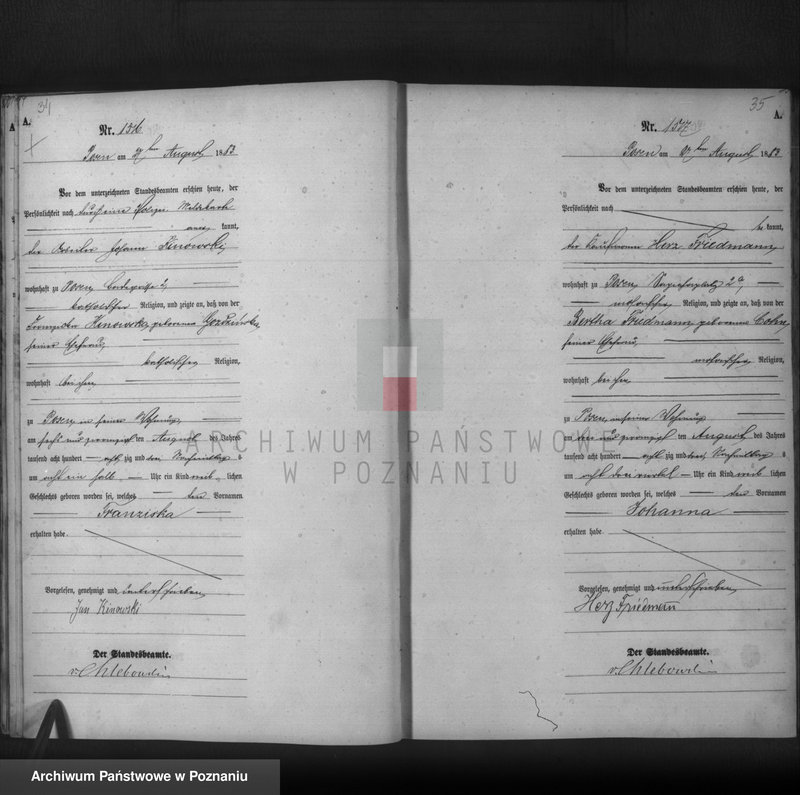 34
A.
Nr. 156
Posen am 27ten August 1883
Vor dem unterzeichneten Standesbeamten erschien heute, der
Persönlichkeit nach durch eine
kannt,
der Johann Kinowski,
wohnhaft zu Posen
katholischer Religion, und zeigte an, daß von der
geborenen
seiner Ehefrau,
katholischer Religion,
wohnhaft bei ihm,
zu Posen in seiner Wohnung
am sechs und zwanzigsten August des Jahres
tausend acht hundert achtzig und drei Nachmittags
um acht ein halb Uhr ein Kind weiblichen
Geschlechts geboren worden sei, welches den Vornamen
Franziska
erhalten habe.
Vorgelesen, genehmigt und unterschrieben
Jan Kinowski
Der Standesbeamte.
v. Chlebowski
35
A.
Nr. 157
Posen am 27ten August 1883
Vor dem unterzeichneten Standesbeamten erschien heute, der
Persönlichkeit nach
be kannt,
der Kaufmann Herz Friedmann,
wohnhaft zu Posen, Sapiehaplatz 2a,
mosaischer Religion, und zeigte an, daß von der
Bertha Friedmann geborenen Cohn,
seiner Ehefrau,
mosaischer Religion,
wohnhaft bei ihm
zu Posen, in seiner Wohnung
am drei und zwanzigsten August des Jahres
tausend acht hundert achtzig und drei Nachmittags
um acht drei viertel Uhr ein Kind weiblichen
Geschlechts geboren worden sei, welches den Vornamen
Johanna
erhalten habe.
Vorgelesen, genehmigt und unterschrieben
Herz Friedmann
Der Standesbeamte.
v. Chlebowski
ARCHIWUM PAŃSTWOWE
W POZNANIU
Archiwum Państwowe w Poznaniu